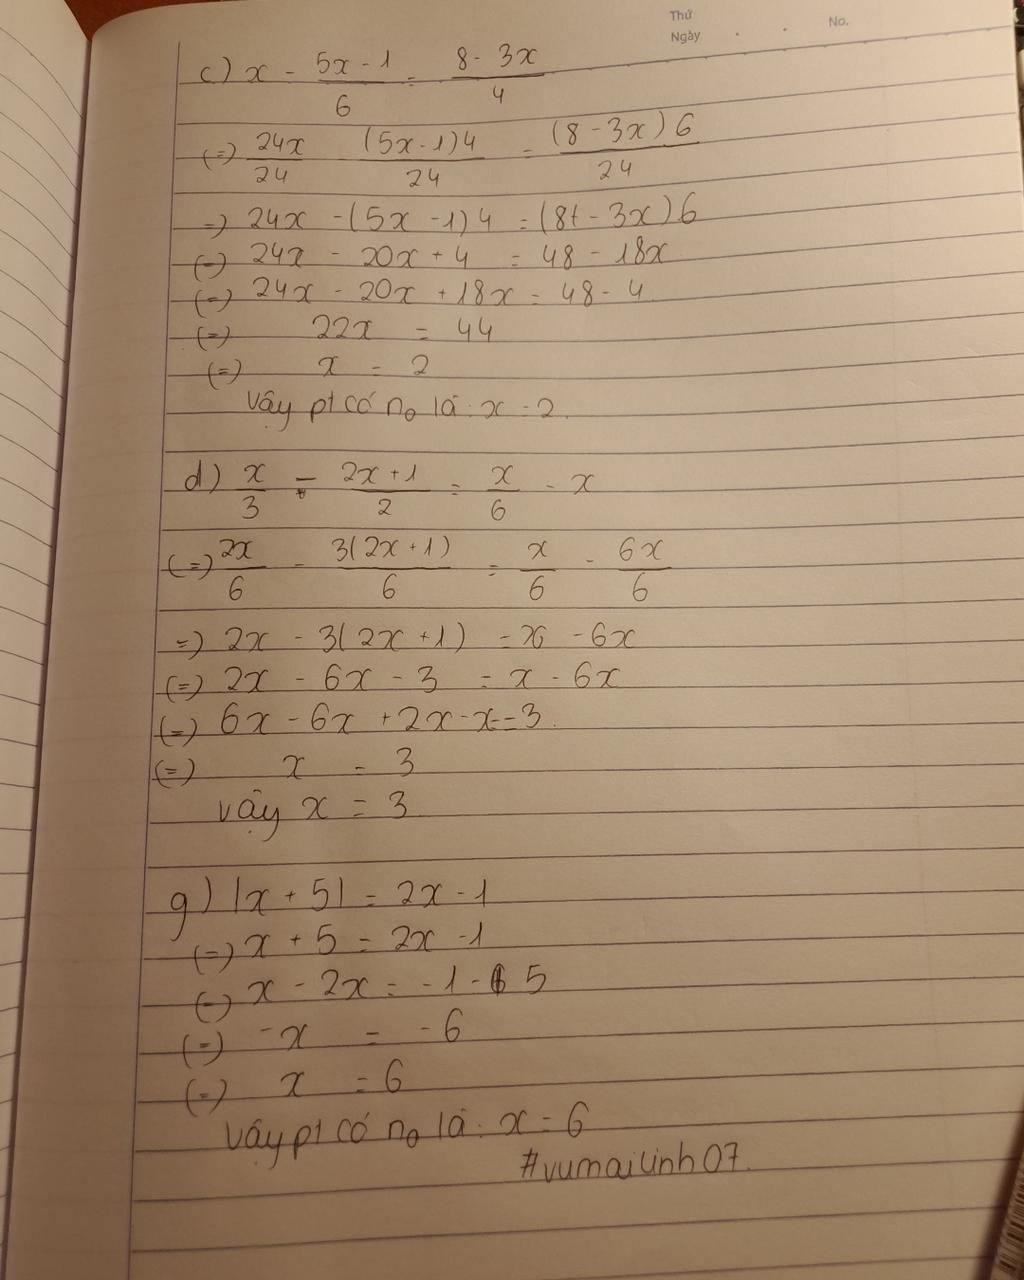 Thứ
No.
Ngày
c) x - \frac{5x - 1}{6} = \frac{8 - 3x}{4}
(=) \frac{24x}{24} \frac{(5x - 1)4}{24} = \frac{(8 - 3x)6}{24}
=) 24x - (5x - 1)4 = (8 - 3x)6
(=) 24x - 20x + 4 = 48 - 18x
(=) 24x - 20x + 18x = 48 - 4
(=) 22x = 44
(=) x = 2
Vậy pt có no là : x = 2.
d) \frac{x}{3} - \frac{2x + 1}{2} = \frac{x}{6} - x
(=) \frac{2x}{6} - \frac{3(2x + 1)}{6} = \frac{x}{6} - \frac{6x}{6}
=) 2x - 3(2x + 1) = x - 6x
(=) 2x - 6x - 3 = x - 6x
(=) 6x - 6x + 2x - x = 3.
(=) x = 3
vậy x = 3
g) |x + 5| = 2x - 1
(=) x + 5 = 2x - 1
(=) x - 2x = -1 - 5
(=) -x = -6
(=) x = 6
Vậy pt có no là : x = 6
#vumailinh07.